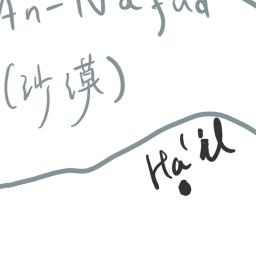 An-Nafud
(沙漠)
Ha'il